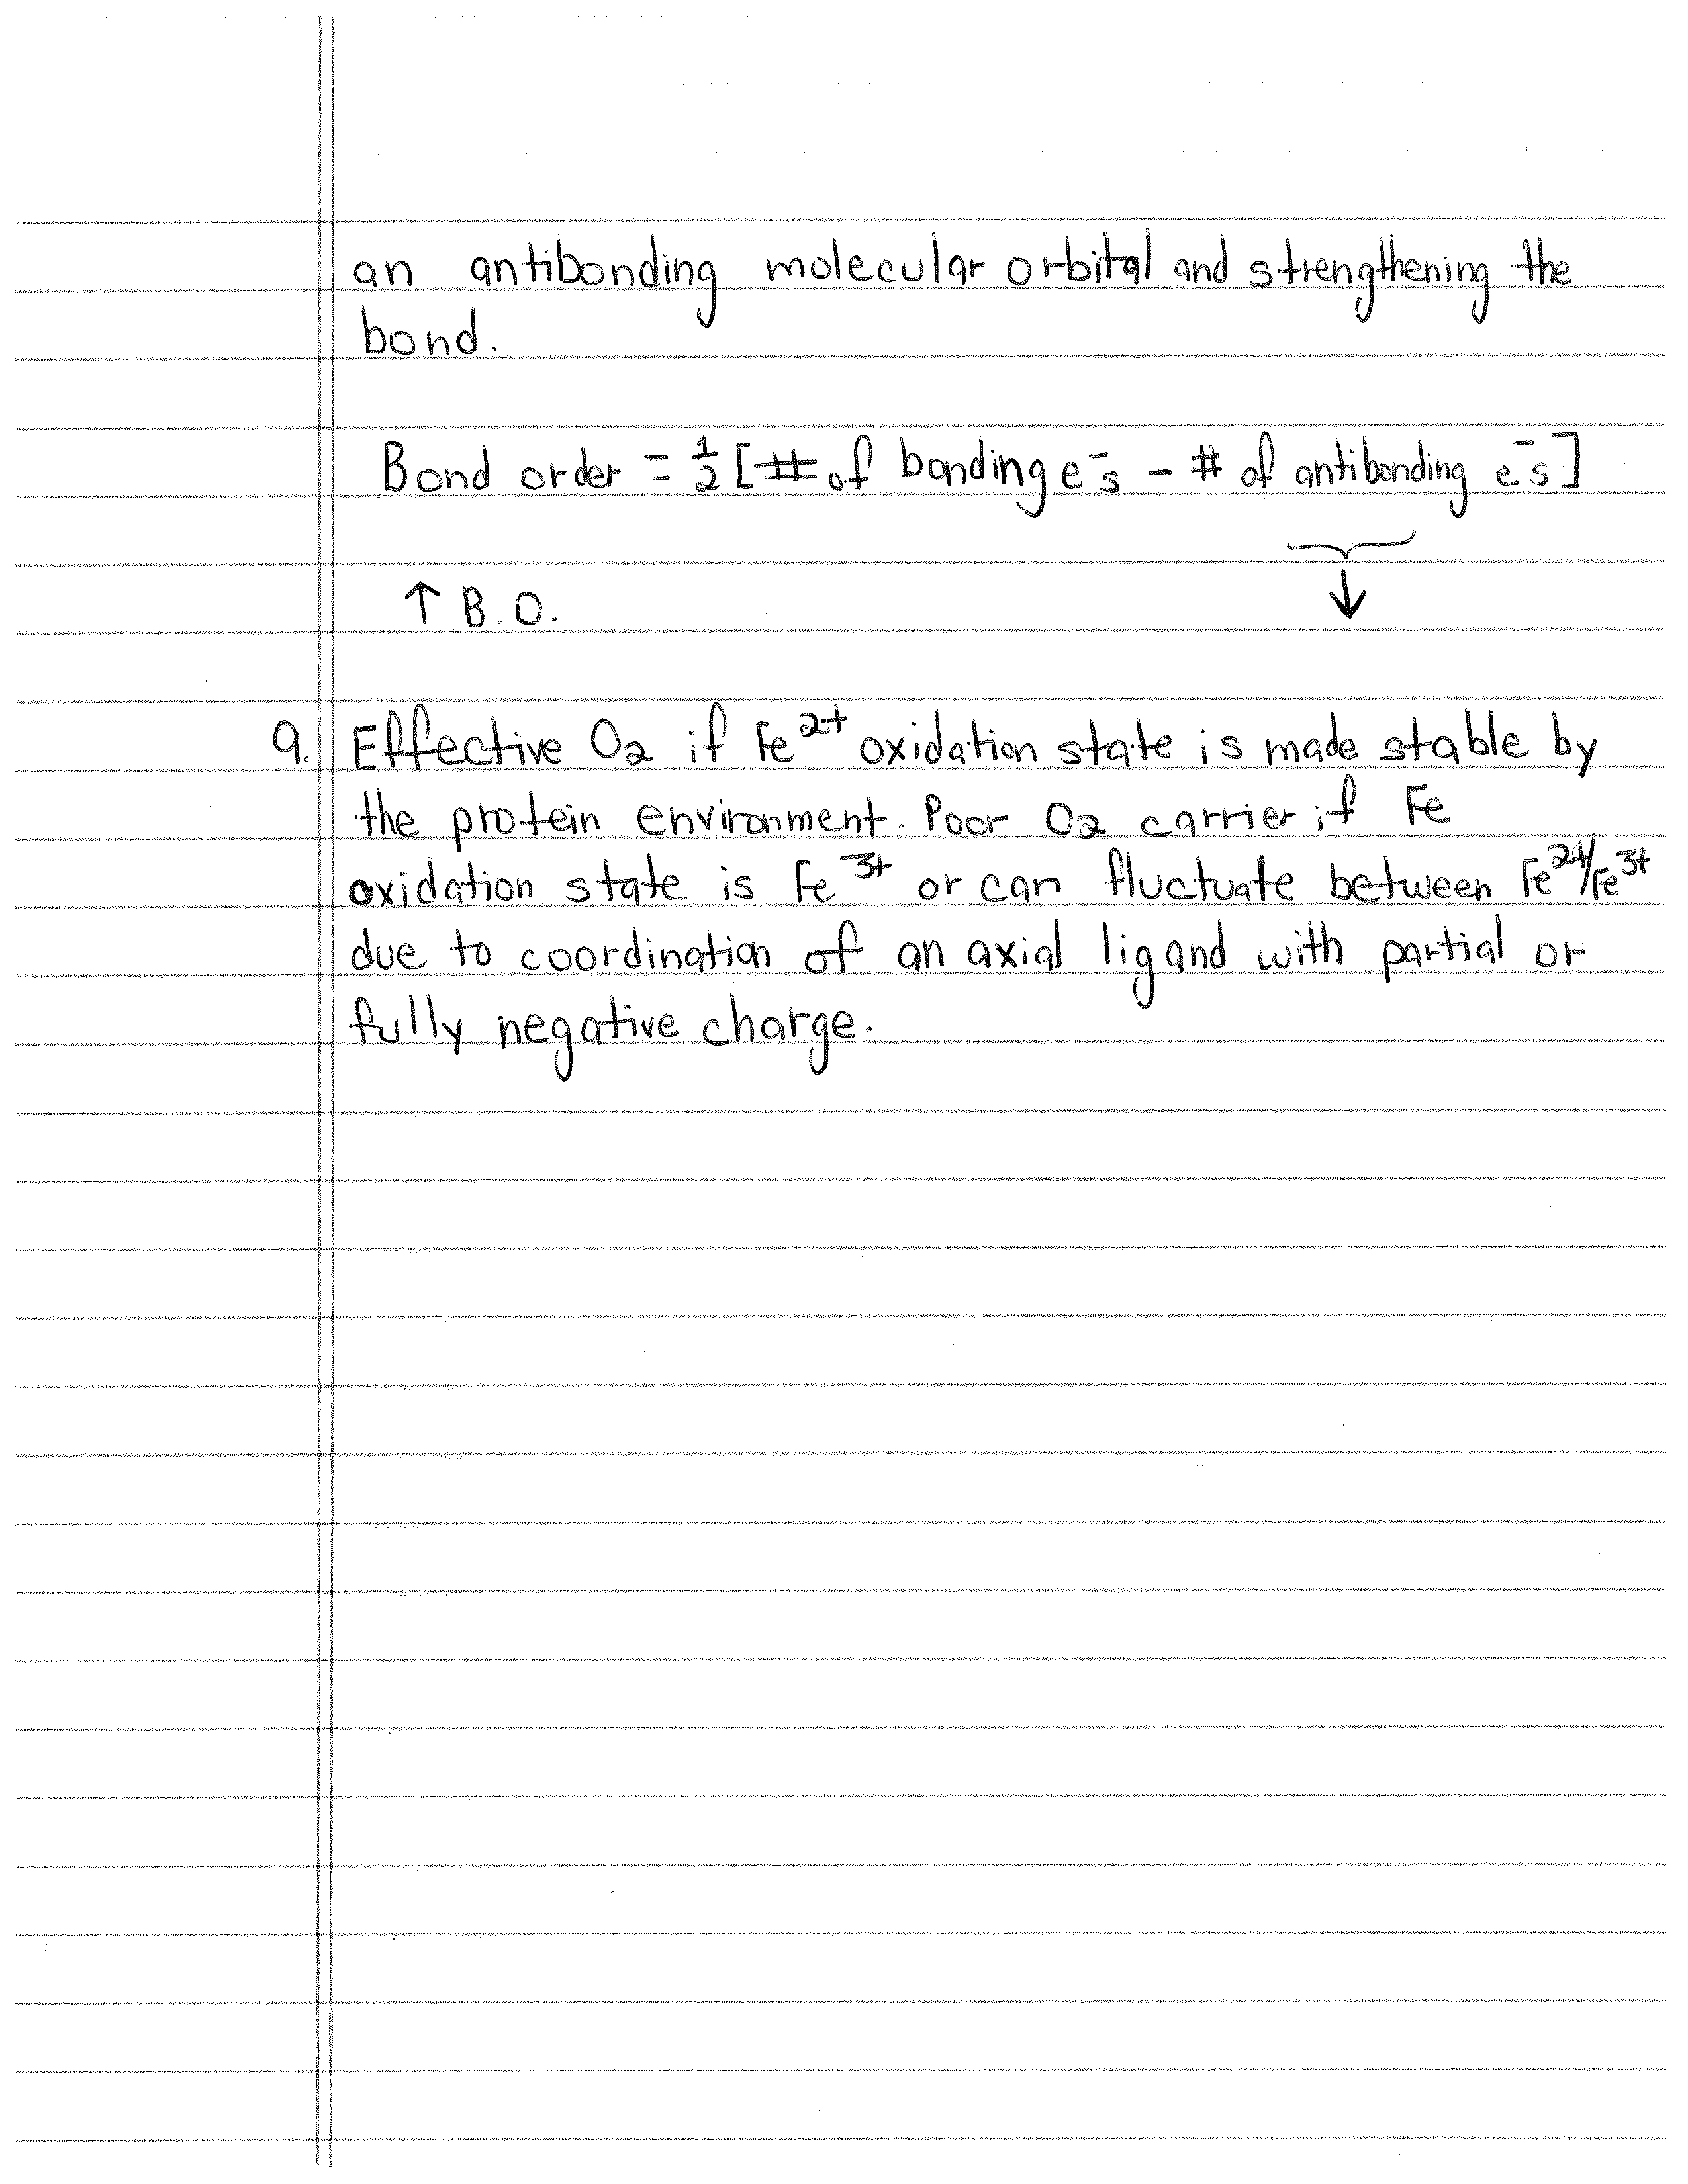 an antibonding molecular orbital and strengthening the
bond.
Bond order = 1/2 [# of bonding e⁻s - # of antibonding e⁻s]
↑ B.O. ↓
9. Effective O₂ if Fe²⁺ oxidation state is made stable by
the protein environment. Poor O₂ carrier if Fe
oxidation state is Fe³⁺ or can fluctuate between Fe²⁺/Fe³⁺
due to coordination of an axial ligand with partial or
fully negative charge.